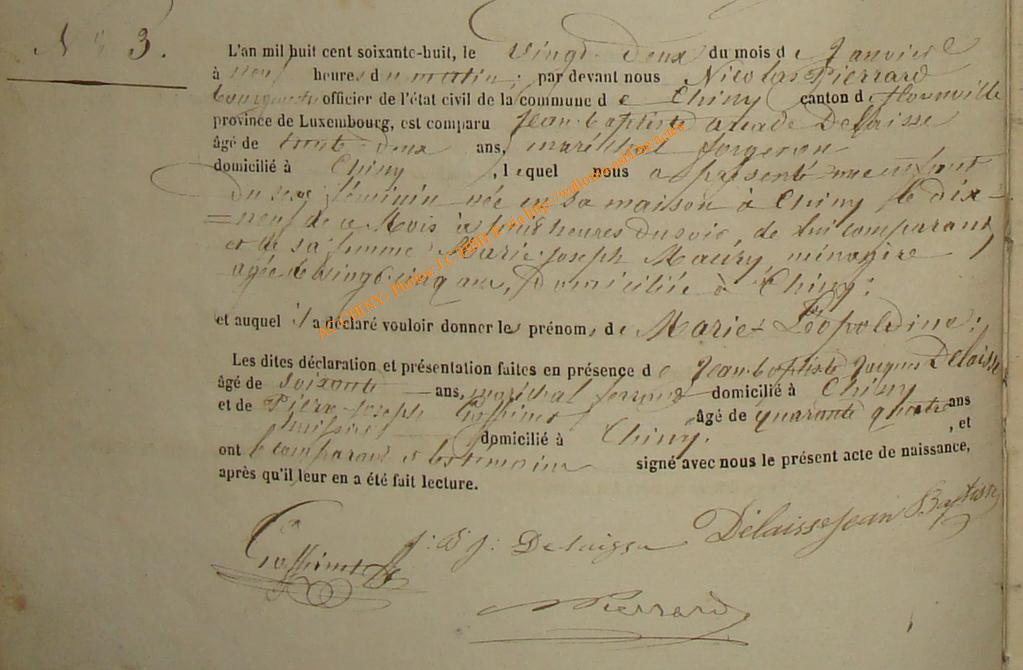 N° 3.
L'an mil huit cent soixante-huit, le vingt-deux du mois de Janvier
à neuf heures du matin, par devant nous Nicolas Pierrard
bourgmestre officier de l'état civil de la commune de Chiny canton de Florenville
province de Luxembourg, est comparu Jean-baptiste Delaisse
âgé de trente-deux ans, maréchal forgeron
domicilié à Chiny, lequel nous a présenté un enfant
du sexe féminin née en sa maison à Chiny le dix-
neuf de ce Mois à huit heures du soir, de lui comparant
et de sa femme Marie-Joseph Maury, ménagère
agée de vingt-cinq ans, domiciliée à Chiny;
et auquel il a déclaré vouloir donner les prénoms de Marie-Léopoldine;
Les dites déclaration et présentation faites en présence de Jean-baptiste Jacques Delaisse
âgé de soixante ans, maréchal ferrant domicilié à Chiny
et de Pierre-Joseph âgé de quarante quatre ans
domicilié à Chiny, et
ont le comparant et les témoins signé avec nous le présent acte de naissance,
après qu'il leur en a été fait lecture.
J. B. J. Delaisse Délaisse Jean Baptiste
Pierrard